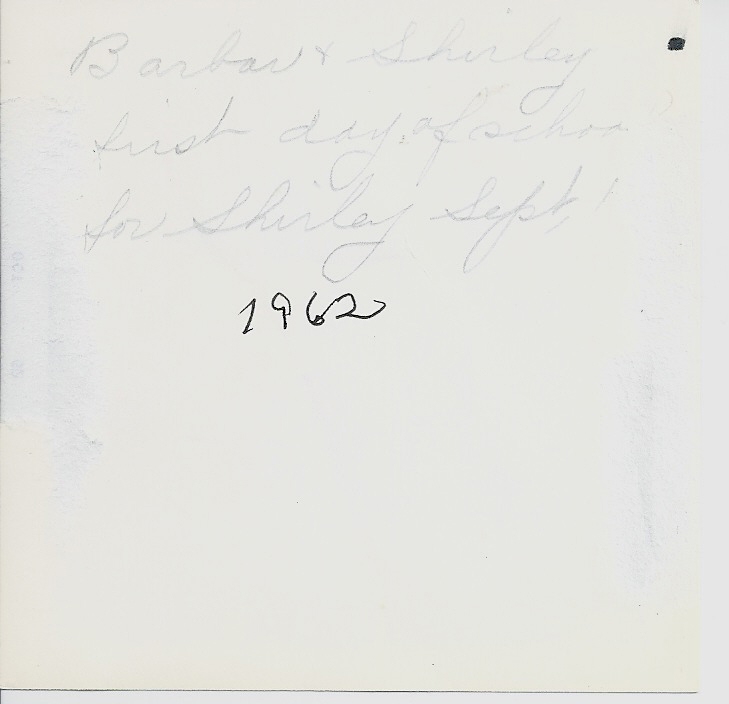 Barbar & Shirley
first day of schoo
for Shirley Sept,
1962
OCT